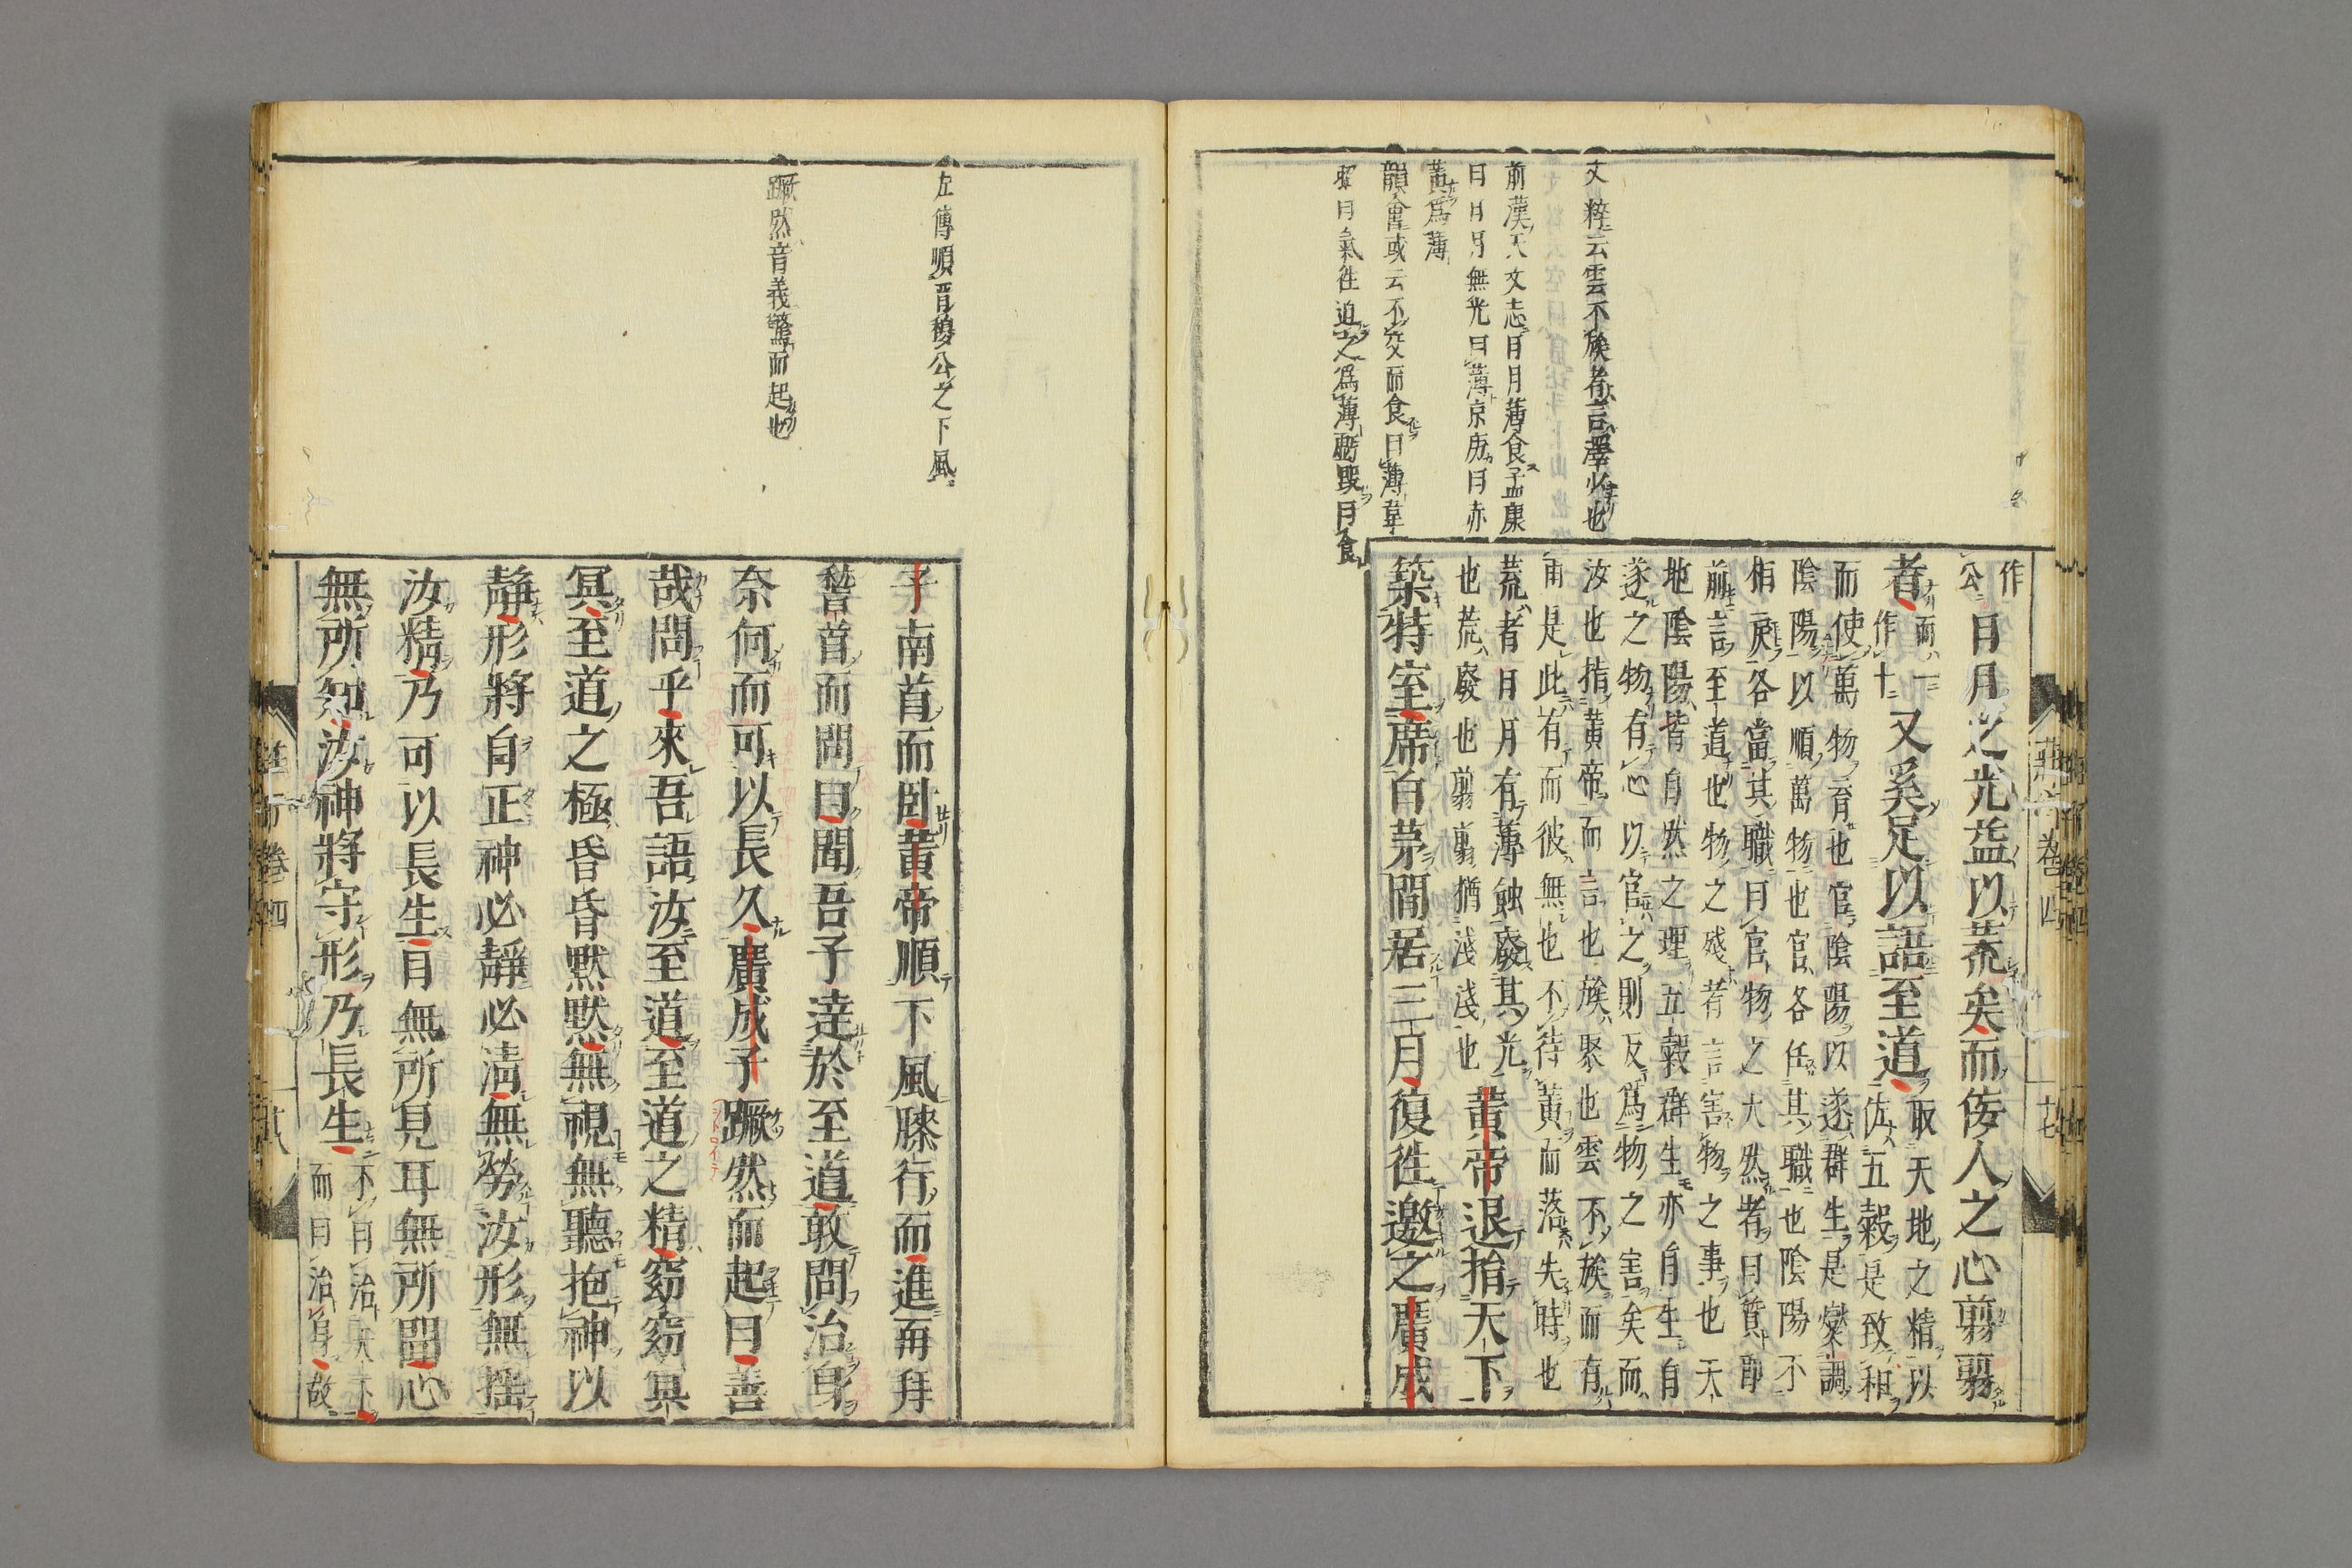 文粹云雲不族者言澤少也
前漢天文志日月薄食孟康
曰日月無光曰薄京房曰赤
黃爲薄
韻會或云不交而食曰薄韋
昭曰氣徃迫之爲薄虧毀曰食
作
公日月之光益以荒矣而佞人之心翦翦
者而一作十又奚足以語至道取天地之精以佐五穀是致和
而使萬物育也官陰陽以遂群生是燮調
陰陽以順萬物也官各任其職也陰陽不
相戾各當其職曰官物之大然者曰質即
前言至道也物之殘者言害物之事也天
地陰陽皆自然之理五穀群生亦自生自
遂之物有心以官之則反爲物之害矣而
汝也指黃帝而言也族聚也雲不族而有
雨是此有而彼無也不待黃而落失時也
荒者日月有薄蝕廢其光
也荒廢也翦翦猶淺淺也黃帝退捐天下
築特室席白茅間居三月復徃邀之廣成
莊子卷四
十七
左傳順晋穆公之下風
蹶然音義驚而起也
子南首而卧黃帝順下風膝行而進再拜
稽首而問曰聞吾子達於至道敢問治身
奈何而可以長久廣成子蹶然而起曰善
哉問乎來吾語汝至道至道之精窈窈冥
冥至道之極昏昏默默無視無聽抱神以
靜形將自正神必靜必淸無勞汝形無搖
汝精乃可以長生目無所見耳無所聞心
無所知汝神將守形乃長生不曰治天下而曰治身故
卷四
十八